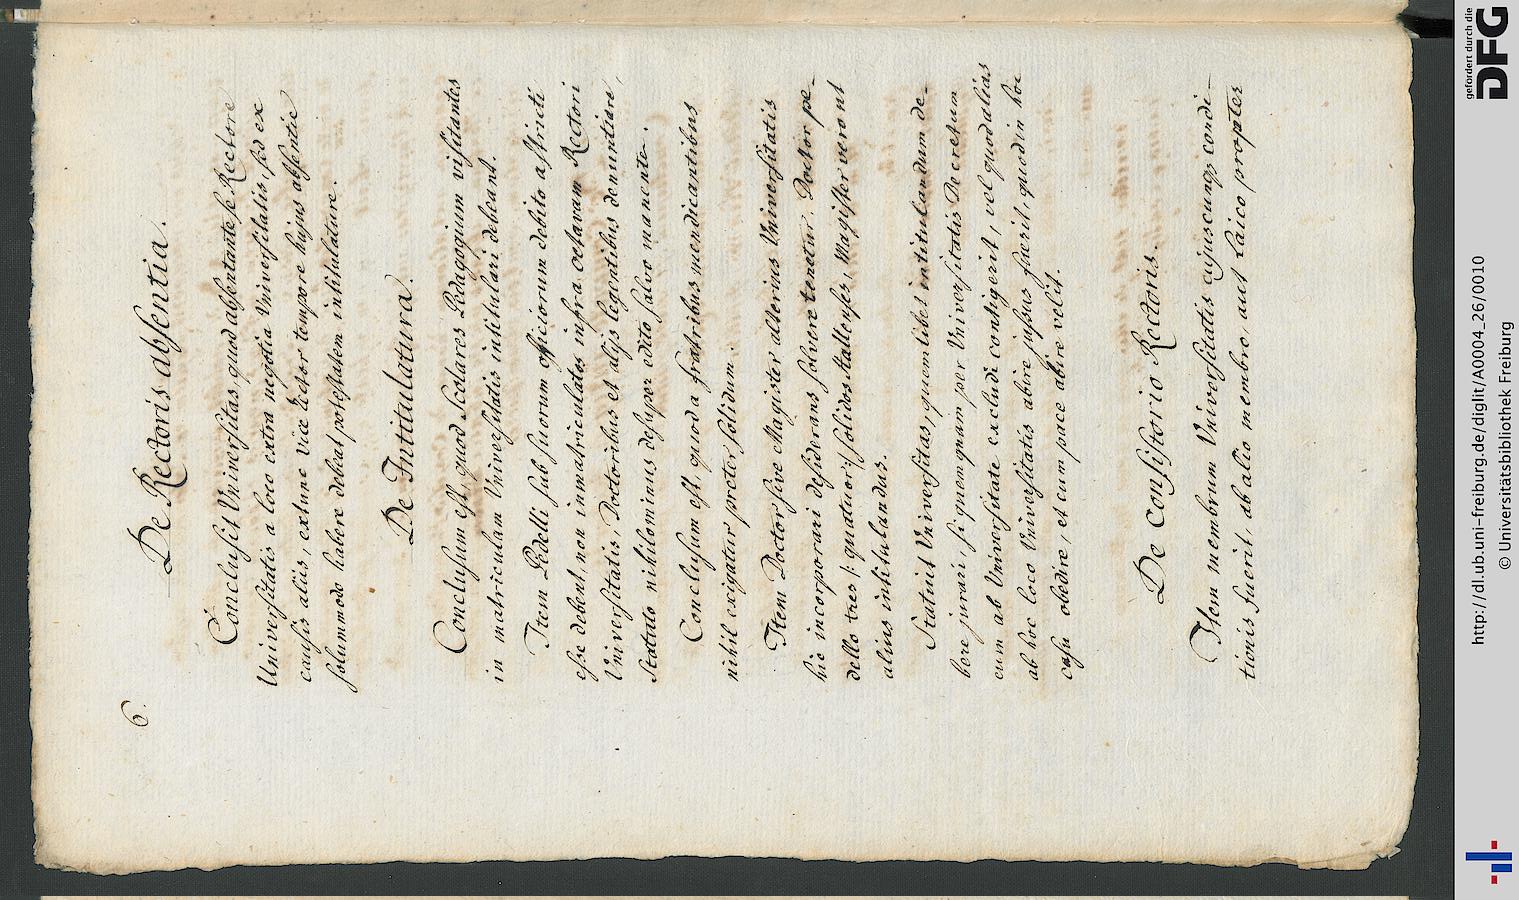 6.
De Rectoris absentia.
Conclusit Universitas, quod absentante se Rectore
Universitatis a loco extra negotia Universitatis, sed ex
causis aliis, extunc Vice Rector tempore hujus absentiæ
solummodo habere debeat potestatem intitulature.
De Intitulatura.
Conclusum est, quod Scolares Pædagogium visitantes
in matriculam Universitatis intitulari debeant.
Item Pedelli sub suorum officiorum debito astricti
esse debent non inmatriculatos infra octavam Rectori
Universitatis, Doctoribus et alijs legentibus denuntiare,
Statuto nihilominus desuper edito salvo manente.
Conclusum est, quod a fratribus mendicantibus
nihil exigatur preter solidum.
Item Doctor sive Magister alterius Universitatis
hic incorporari desiderans solvere tenetur. Doctor pe-
dello tres /: quatuor :/ solidos rallenses, Magister vero ut
alius intitulandus.
Statuit Universitas, quemlibet intitulandum de-
bere jurari, si quemquam per Universitatis Decretum
eum ab Universitate excludi contigerit, vel quod alias
ab hoc loco Universitatis abire jussus fuerit, quod in hoc
casu obedire, et cum pace abire velit.
De consistorio Rectoris.
Item membrum Universitatis cujuscunq3 condi-
tionis fuerit, ab alio membro, aut Laico propter
gefördert durch die
DFG
http://dl.ub.uni-freiburg.de/diglit/A0004_26/0010
© Universitätsbibliothek Freiburg